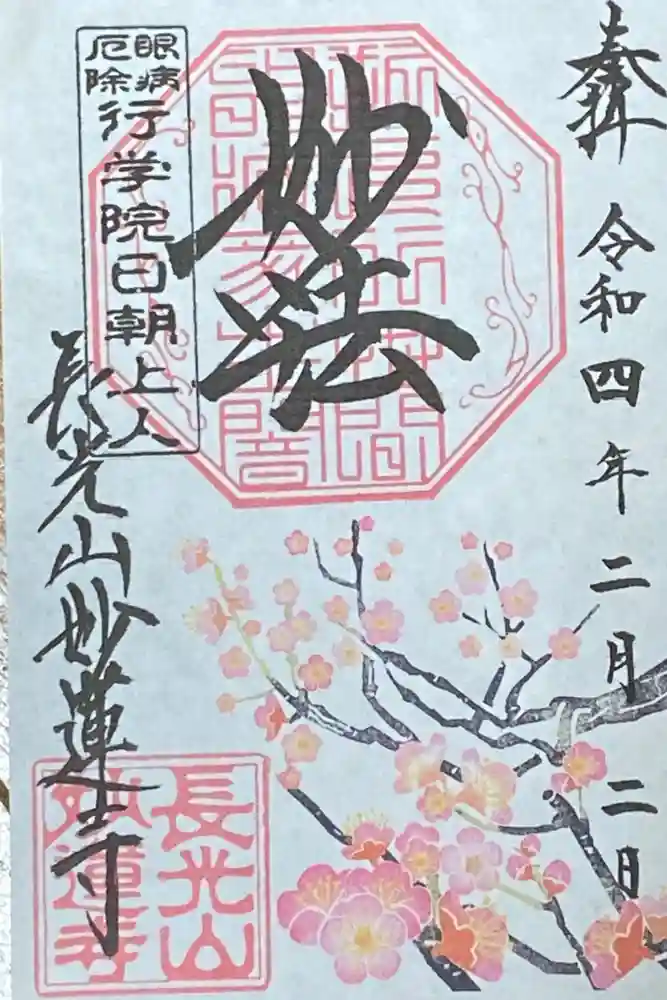 奉拝
令和四年二月二日
妙法
眼病
厄除
行学院日朝上人
長光山妙蓮寺
長光山
妙蓮寺